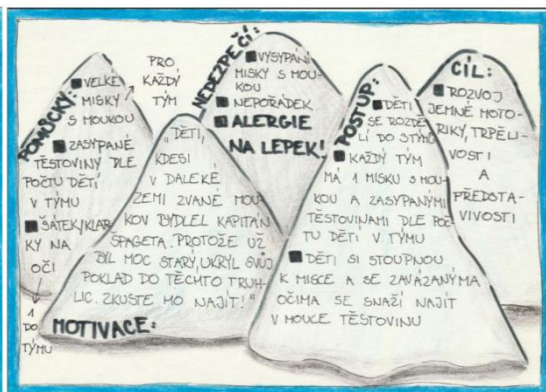 POMŮCKY:
■ VELKÉ
MISKY
S MOUKOU
■ ZASYPANÉ
TĚSTOVINY DLE
POČTU DĚTÍ
V TÝMU
■ ŠÁTEK/KLAP
KY NA
OČI
1
DO
TÝMU
PRO
KAŽDÝ
TÝM
NEBEZPEČÍ:
■ VYSYPÁNÍ
MISKY S MOU-
KOU
■ NEPOŘÁDEK
■ ALERGIE
NA LEPEK!
„DĚTI,
KDESI
V DALEKÉ
ZEMI ZVANÉ MOU
KOV BYDLEL KAPITÁN
ŠPAGETA. PROTOŽE UŽ
BYL MOC STARÝ, UKRYL SVŮJ
POKLAD DO TĚCHTO TRUH-
LIC. ZKUSTE HO NAJÍT!"
MOTIVACE:
POSTUP:
■ DĚTI
SE ROZDĚ
LÍ DO TÝMŮ
■ KAŽDÝ TÝM
MÁ 1 MISKU S MOU-
KOU A ZASYPANÝMI
TĚSTOVINAMI DLE POČ-
TU DĚTÍ V TÝMU
■ DĚTI SI STOUPNOU
K MISCE A SE ZAVÁZANÝMA
OČIMA SE SNAŽÍ NAJÍT
V MOUCE TĚSTOVINU
CÍL:
■ ROZVOJ
JEMNÉ MOTO-
RIKY, TRPĚLI-
VOSTI
A
PŘEDSTA-
VIVOSTI